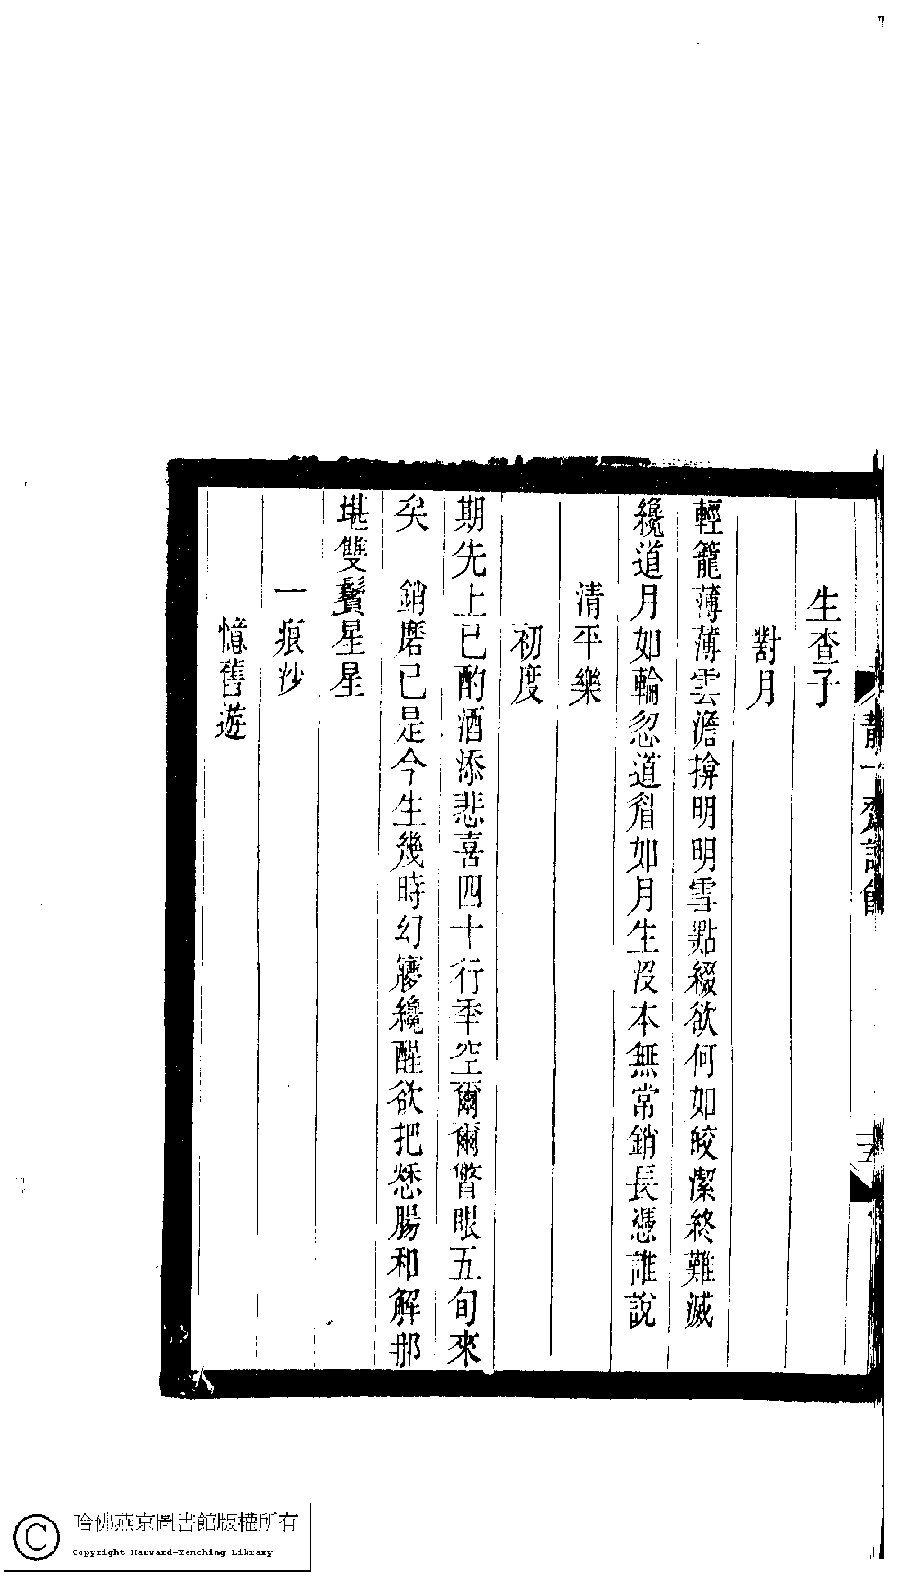 生查子
對月
輕籠薄薄雲澹揜明明雪點綴欲何如皎潔終難滅
纔道月如輪忽道眉如月生沒本無常銷長憑誰說
清平樂
初度
期先上巳酌酒添悲喜四十行年空爾爾瞥眼五旬來
矣　銷磨已是今生幾時幻㝱纔醒欲把愁腸和解那
堪雙鬢星星
一痕沙
憶舊遊
一齋詩餘
三五
哈佛燕京圖書館版權所有
Copyright Harvard-Yenching Library